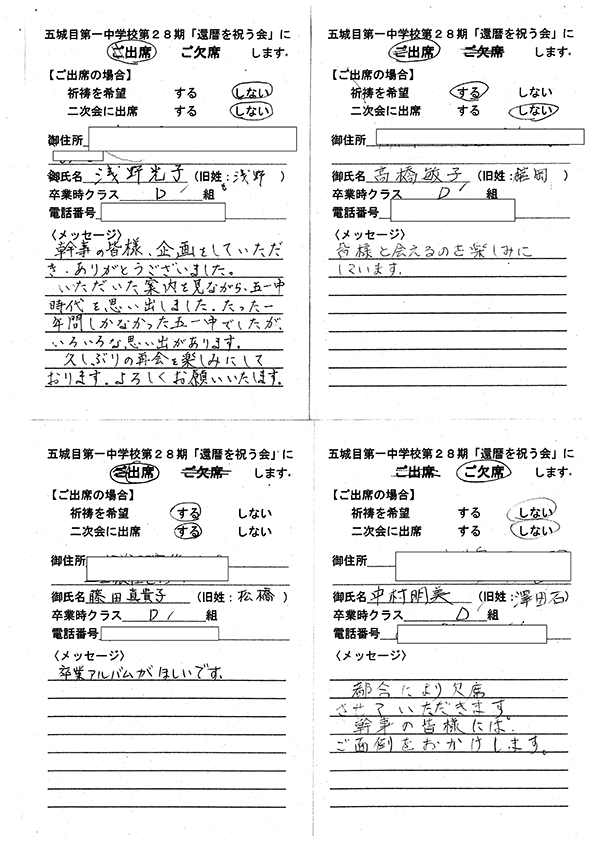 五城目第一中学校第２８期「還暦を祝う会」に
ご出席 ご欠席 します。
【ご出席の場合】
祈祷を希望 する しない
二次会に出席 する しない
御住所
御氏名 浅野光子 (旧姓:浅野 )
卒業時クラス D 組
電話番号
〈メッセージ〉
幹事の皆様、企画をしていただ
き、ありがとうございました。
いただいた案内を見ながら、五一中
時代を思い出しました。たった一
年間しかなかった五一中でしたが、
いろいろな思い出があります。
久しぶりの再会を楽しみにして
おります。よろしくお願いいたします。
五城目第一中学校第２８期「還暦を祝う会」に
ご出席 ご欠席 します。
【ご出席の場合】
祈祷を希望 する しない
二次会に出席 する しない
御住所
御氏名 髙橋敏子 (旧姓: 岡 )
卒業時クラス D 組
電話番号
〈メッセージ〉
皆様と会えるのを楽しみに
しています。
五城目第一中学校第２８期「還暦を祝う会」に
ご出席 ご欠席 します。
【ご出席の場合】
祈祷を希望 する しない
二次会に出席 する しない
御住所
御氏名 藤田真貴子 (旧姓:松橋 )
卒業時クラス D 組
電話番号
〈メッセージ〉
卒業アルバムがほしいです。
五城目第一中学校第２８期「還暦を祝う会」に
ご出席 ご欠席 します。
【ご出席の場合】
祈祷を希望 する しない
二次会に出席 する しない
御住所
御氏名 中村明美 (旧姓:澤田石)
卒業時クラス D 組
電話番号
〈メッセージ〉
都合により欠席
させていただきます。
幹事の皆様には、
ご面倒をおかけします。